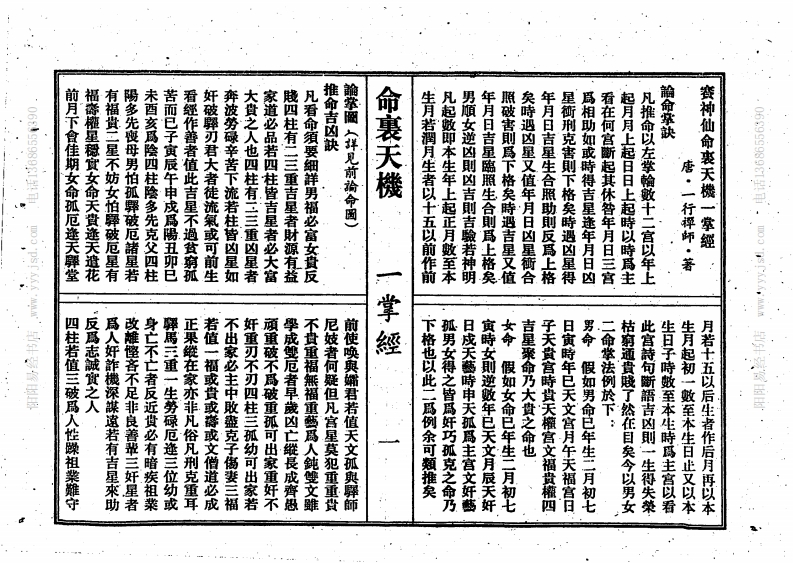 賽神仙命裏天機一掌經
唐・一行禪師・著
論命掌訣
凡推命以左掌輪數十二宮以年上
起月月上起日日上起時以時爲主
看在何宮斷起其休咎年月日三宮
爲相助如或時得吉星逢年月日凶
星衝刑克害則下格矣時遇凶星得
年月日吉星生合照助則反爲上格
矣時遇凶星又值年月日凶星衝合
照破害則爲下格矣時遇吉星又值
年月日吉星臨照生合則爲上格矣
男順女逆凶則凶吉則吉驗若神明
凡起數即本生年上起正月數至本
生月若潤月生者以十五以前作前
月若十五以后生者作后月再以本
生月起初一數至本生日止又以本
生日子時數至本生時爲主宮以看
此宮詩句斷語吉凶則一生得失榮
枯窮通貴賤了然在目矣今以男女
二命掌法例於下：
男命　假如男命巳年生二月初七
日寅時年巳天文宮月午天福宮日
子天貴宮時貴天權宮文福貴權四
吉星聚命乃大貴之命也
女命　假如女命巳年生二月初七
寅時女則逆數年巳天文月辰天奸
日戌天藝時申天孤爲主宮文奸藝
孤男女得之皆爲奸巧孤克之命乃
下格也以此二爲例余可類推矣
命裏天機
一掌經
一
論掌圖（詳見前論命圖）
推命吉凶訣
凡看命須要細詳男福必富女貴反
賤四柱有二三重吉星者財源有益
家道必品若四柱皆吉星者必大富
大貴之人也四柱有二三重凶星者
奔波勞碌辛苦下流若柱皆凶星如
奸破驛刃君大者徒流氣或可前生
看經作善者值此吉星不過貧窮孤
苦而已子寅辰午申戌爲陽丑卯巳
未酉亥爲陰四柱陰多先克父四柱
陽多先喪母男怕孤驛破厄諸星若
有福貴二星不妨女怕驛破厄星有
福壽權星穩實女命天貴逢天遣花
前月下會佳期女命孤厄逢天驛堂
前使喚與孀君若值天文孤與驛師
尼妓者何疑但凡宮星莫犯重重貴
不貴重福無福重藝爲人鈍雙文雖
學成雙厄者早歲凶亡縱長成齊愚
頑重破不爲破重孤可出家重奸不
奸重刃不刃四柱三孤幼可出家若
不出家必主中敗盡克子傷妻三福
若值一福或貴或壽或文僧道必成
正果縱在家亦非凡俗凡刑克重耳
驛馬三重一生勞碌厄逢三位幼或
身亡不亡者反近貴必有暗疾祖業
改離慳吝不足非良善輩三奸星者
爲人奸詐機深謀遠若有吉星來助
反爲志誠實之人
四柱若值三破爲人性躁祖業難守